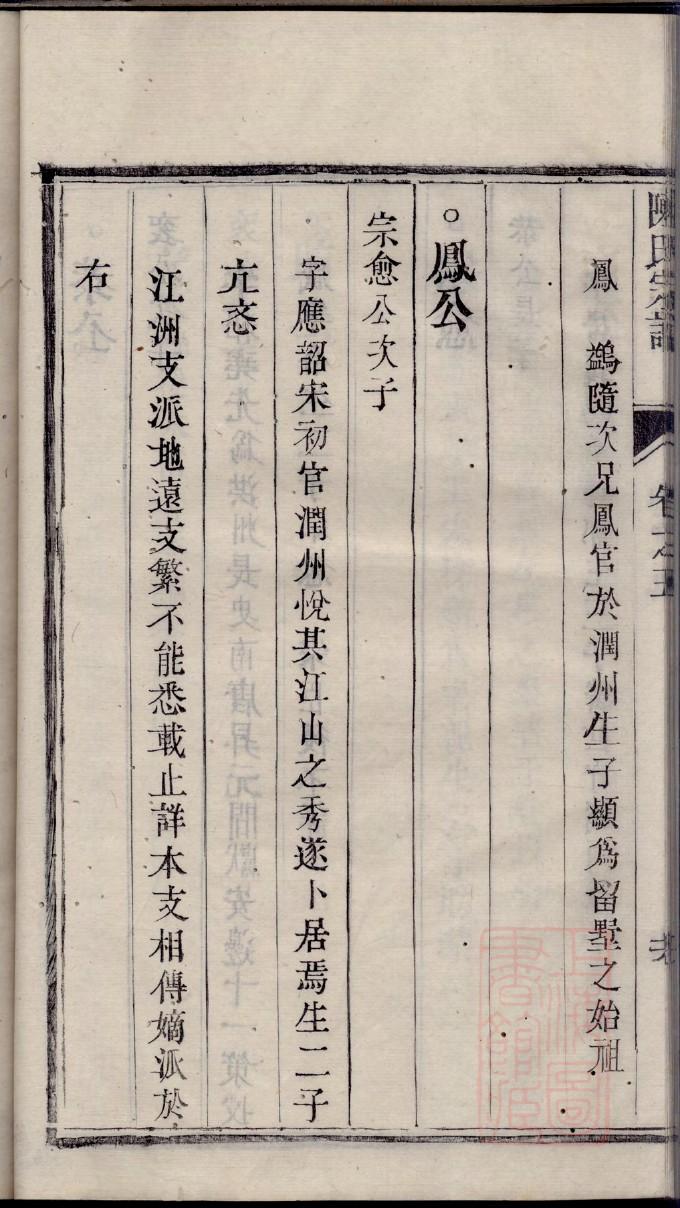 陳氏宗譜 卷之五
鳳 鷁隨次兄鳳官於潤州生子顯爲留墅之始祖
○鳳公
宗愈公次子
字應韶宋初官潤州悅其江山之秀遂卜居焉生二子
亢忞
江洲支派地遠支繁不能悉載止詳本支相傳嫡派於
右